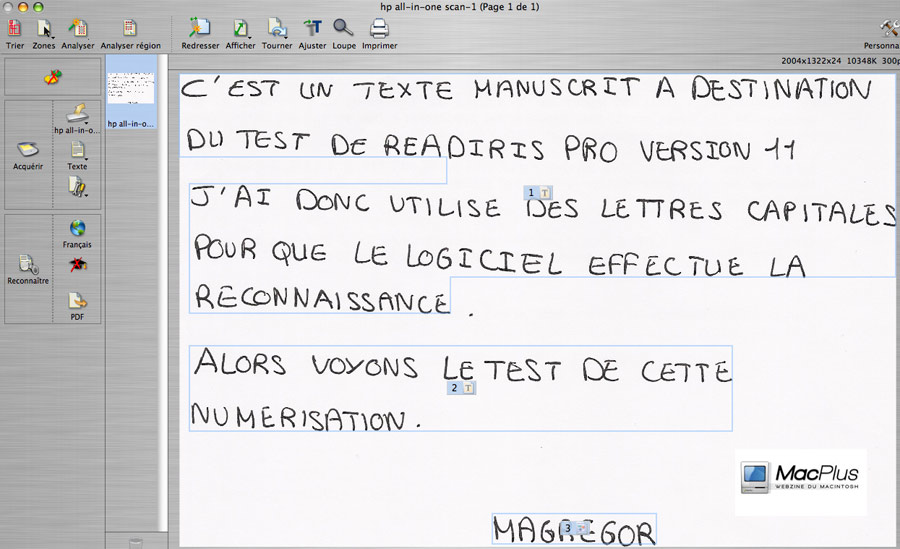 hp all-in-one scan-1 (Page 1 de 1)
Trier Zones Analyser Analyser région Redresser Afficher Tourner Ajuster Loupe Imprimer Personna
2004x1322x24 10348K 300p
hp all-in-o...
hp all-in-o...
Acquérir
Texte
Français
Reconnaître
PDF
C'EST UN TEXTE MANUSCRIT A DESTINATION
DU TEST DE READIRIS PRO VERSION 11
1 T
J'AI DONC UTILISE DES LETTRES CAPITALES
POUR QUE LE LOGICIEL EFFECTUE LA
RECONNAISSANCE.
ALORS VOYONS LE TEST DE CETTE
2 T
NUMERISATION.
MacPlus
WEBZINE DU MACINTOSH
3
MAGREGOR